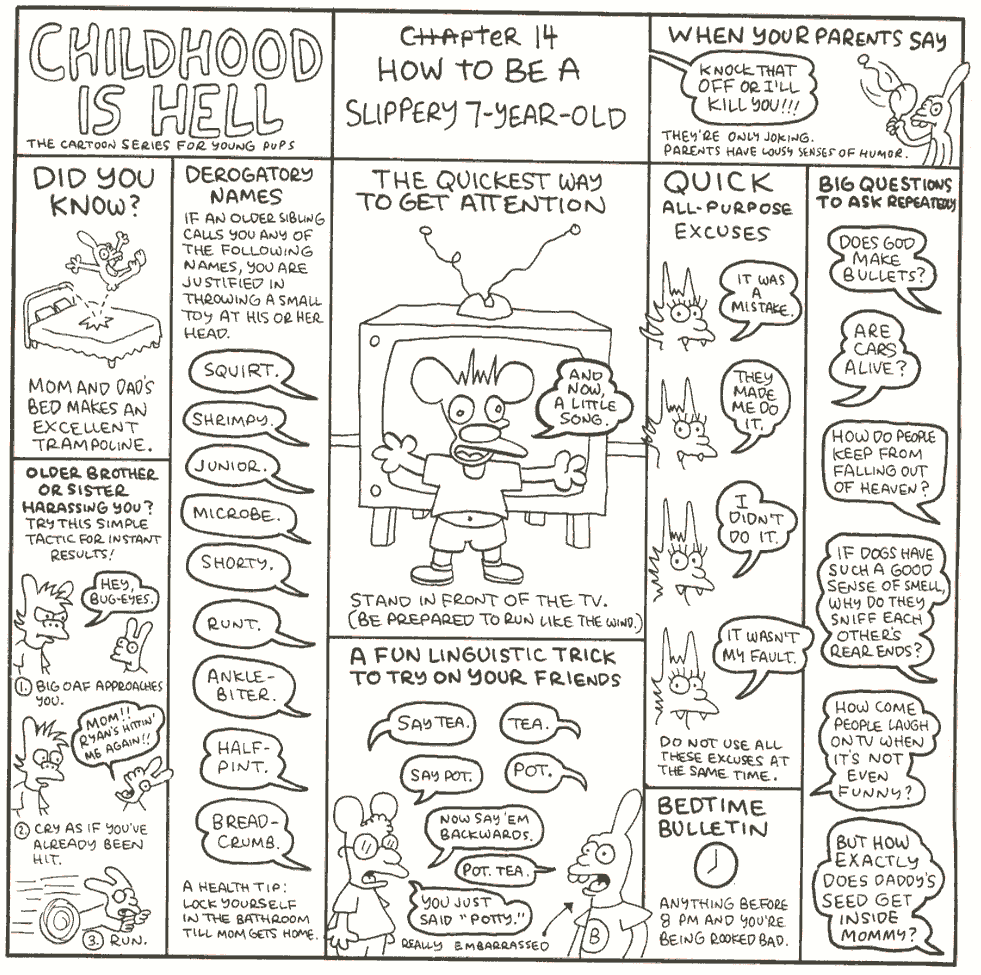 CHILDHOOD
IS HELL
THE CARTOON SERIES FOR YOUNG PUPS
CHAPTER 14
HOW TO BE A
SLIPPERY 7-YEAR-OLD
WHEN YOUR PARENTS SAY
KNOCK THAT
OFF OR I'LL
KILL YOU!!!
THEY'RE ONLY JOKING.
PARENTS HAVE LOUSY SENSES OF HUMOR.
DID YOU
KNOW?
MOM AND DAD'S
BED MAKES AN
EXCELLENT
TRAMPOLINE.
OLDER BROTHER
OR SISTER
HARASSING YOU?
TRY THIS SIMPLE
TACTIC FOR INSTANT
RESULTS!
HEY,
BUG-EYES.
1. BIG OAF APPROACHES
YOU.
MOM!!
RYAN'S HITTIN'
ME AGAIN!!
2. CRY AS IF YOU'VE
ALREADY BEEN
HIT.
3. RUN.
DEROGATORY
NAMES
IF AN OLDER SIBLING
CALLS YOU ANY OF
THE FOLLOWING
NAMES, YOU ARE
JUSTIFIED IN
THROWING A SMALL
TOY AT HIS OR HER
HEAD.
SQUIRT.
SHRIMPY.
JUNIOR.
MICROBE.
SHORTY.
RUNT.
ANKLE-
BITER.
HALF-
PINT.
BREAD-
CRUMB.
A HEALTH TIP:
LOCK YOURSELF
IN THE BATHROOM
TILL MOM GETS HOME.
THE QUICKEST WAY
TO GET ATTENTION
AND
NOW,
A LITTLE
SONG.
STAND IN FRONT OF THE TV.
(BE PREPARED TO RUN LIKE THE WIND.)
A FUN LINGUISTIC TRICK
TO TRY ON YOUR FRIENDS
SAY TEA.
TEA.
SAY POT.
POT.
NOW SAY 'EM
BACKWARDS.
POT. TEA.
YOU JUST
SAID "POTTY."
REALLY EMBARRASSED
B
QUICK
ALL-PURPOSE
EXCUSES
IT WAS
A
MISTAKE.
THEY
MADE
ME DO
IT.
I
DIDN'T
DO IT.
IT WASN'T
MY FAULT.
DO NOT USE ALL
THESE EXCUSES AT
THE SAME TIME.
BEDTIME
BULLETIN
ANYTHING BEFORE
8 PM AND YOU'RE
BEING ROOKED BAD.
BIG QUESTIONS
TO ASK REPEATEDLY
DOES GOD
MAKE
BULLETS?
ARE
CARS
ALIVE?
HOW DO PEOPLE
KEEP FROM
FALLING OUT
OF HEAVEN?
IF DOGS HAVE
SUCH A GOOD
SENSE OF SMELL,
WHY DO THEY
SNIFF EACH
OTHER'S
REAR ENDS?
HOW COME
PEOPLE LAUGH
ON TV WHEN
IT'S NOT
EVEN
FUNNY?
BUT HOW
EXACTLY
DOES DADDY'S
SEED GET
INSIDE
MOMMY?